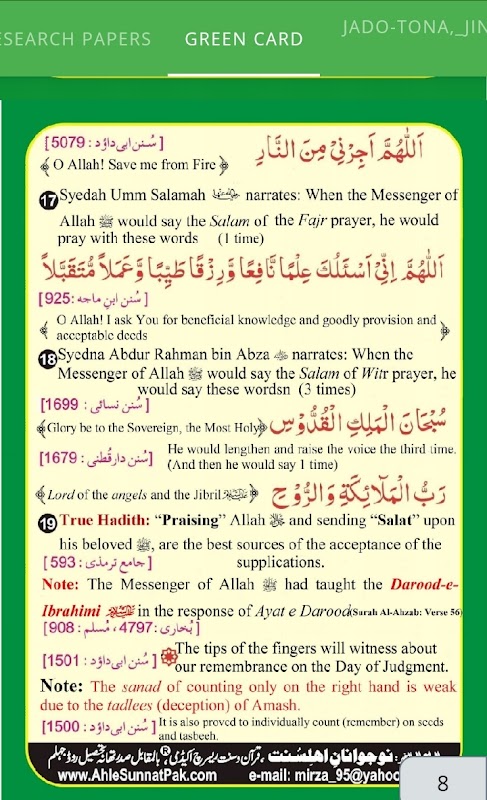 ESEARCH PAPERS GREEN CARD JADO-TONA,_JIN
[سُنن ابی داؤد : 5079] اَللّٰهُمَّ اَجِرْنِيْ مِنَ النَّارِ
O Allah! Save me from Fire
17 Syedah Umm Salamah narrates: When the Messenger of
Allah ﷺ would say the Salam of the Fajr prayer, he would
pray with these words (1 time)
اَللّٰهُمَّ اِنِّيْ اَسْئَلُكَ عِلْمًا نَّافِعًا وَّرِزْقًا طَيِّبًا وَّعَمَلًا مُّتَقَبَّلًا
[سُنن ابنِ ماجه : 925]
O Allah! I ask You for beneficial knowledge and goodly provision and
acceptable deeds
18 Syedna Abdur Rahman bin Abza narrates: When the
Messenger of Allah ﷺ would say the Salam of Witr prayer, he
would say these wordsn (3 times)
[سُنن نسائی : 1699] سُبْحَانَ الْمَلِكِ الْقُدُّوْسِ
Glory be to the Sovereign, the Most Holy
He would lengthen and raise the voice the third time.
[سُنن دارقُطنی : 1679] (And then he would say 1 time)
Lord of the angels and the Jibril رَبُّ الْمَلَائِكَةِ وَالرُّوْحِ
19 True Hadith: “Praising” Allah and sending “Salat” upon
his beloved ﷺ, are the best sources of the acceptance of the
[جامع ترمذی : 593] supplications.
Note: The Messenger of Allah ﷺ had taught the Darood-e-
Ibrahimi in the response of Ayat e Darood(Surah Al-Ahzab: Verse 56)
[بُخاری : 4797، مُسلم : 908]
The tips of the fingers will witness about
[سُنن ابی داؤد : 1501] our remembrance on the Day of Judgment.
Note: The sanad of counting only on the right hand is weak
due to the tadlees (deception) of Amash.
[سُنن ابی داؤد : 1500] It is also proved to individually count (remember) on seeds
and tasbeeh.
نوجوانانِ اهلسُنت ، قرآن و سنت ریسرچ اکیڈمی ® بالمقابل
www.AhleSunnatPak.com e-mail: mirza_95@yahoo
8